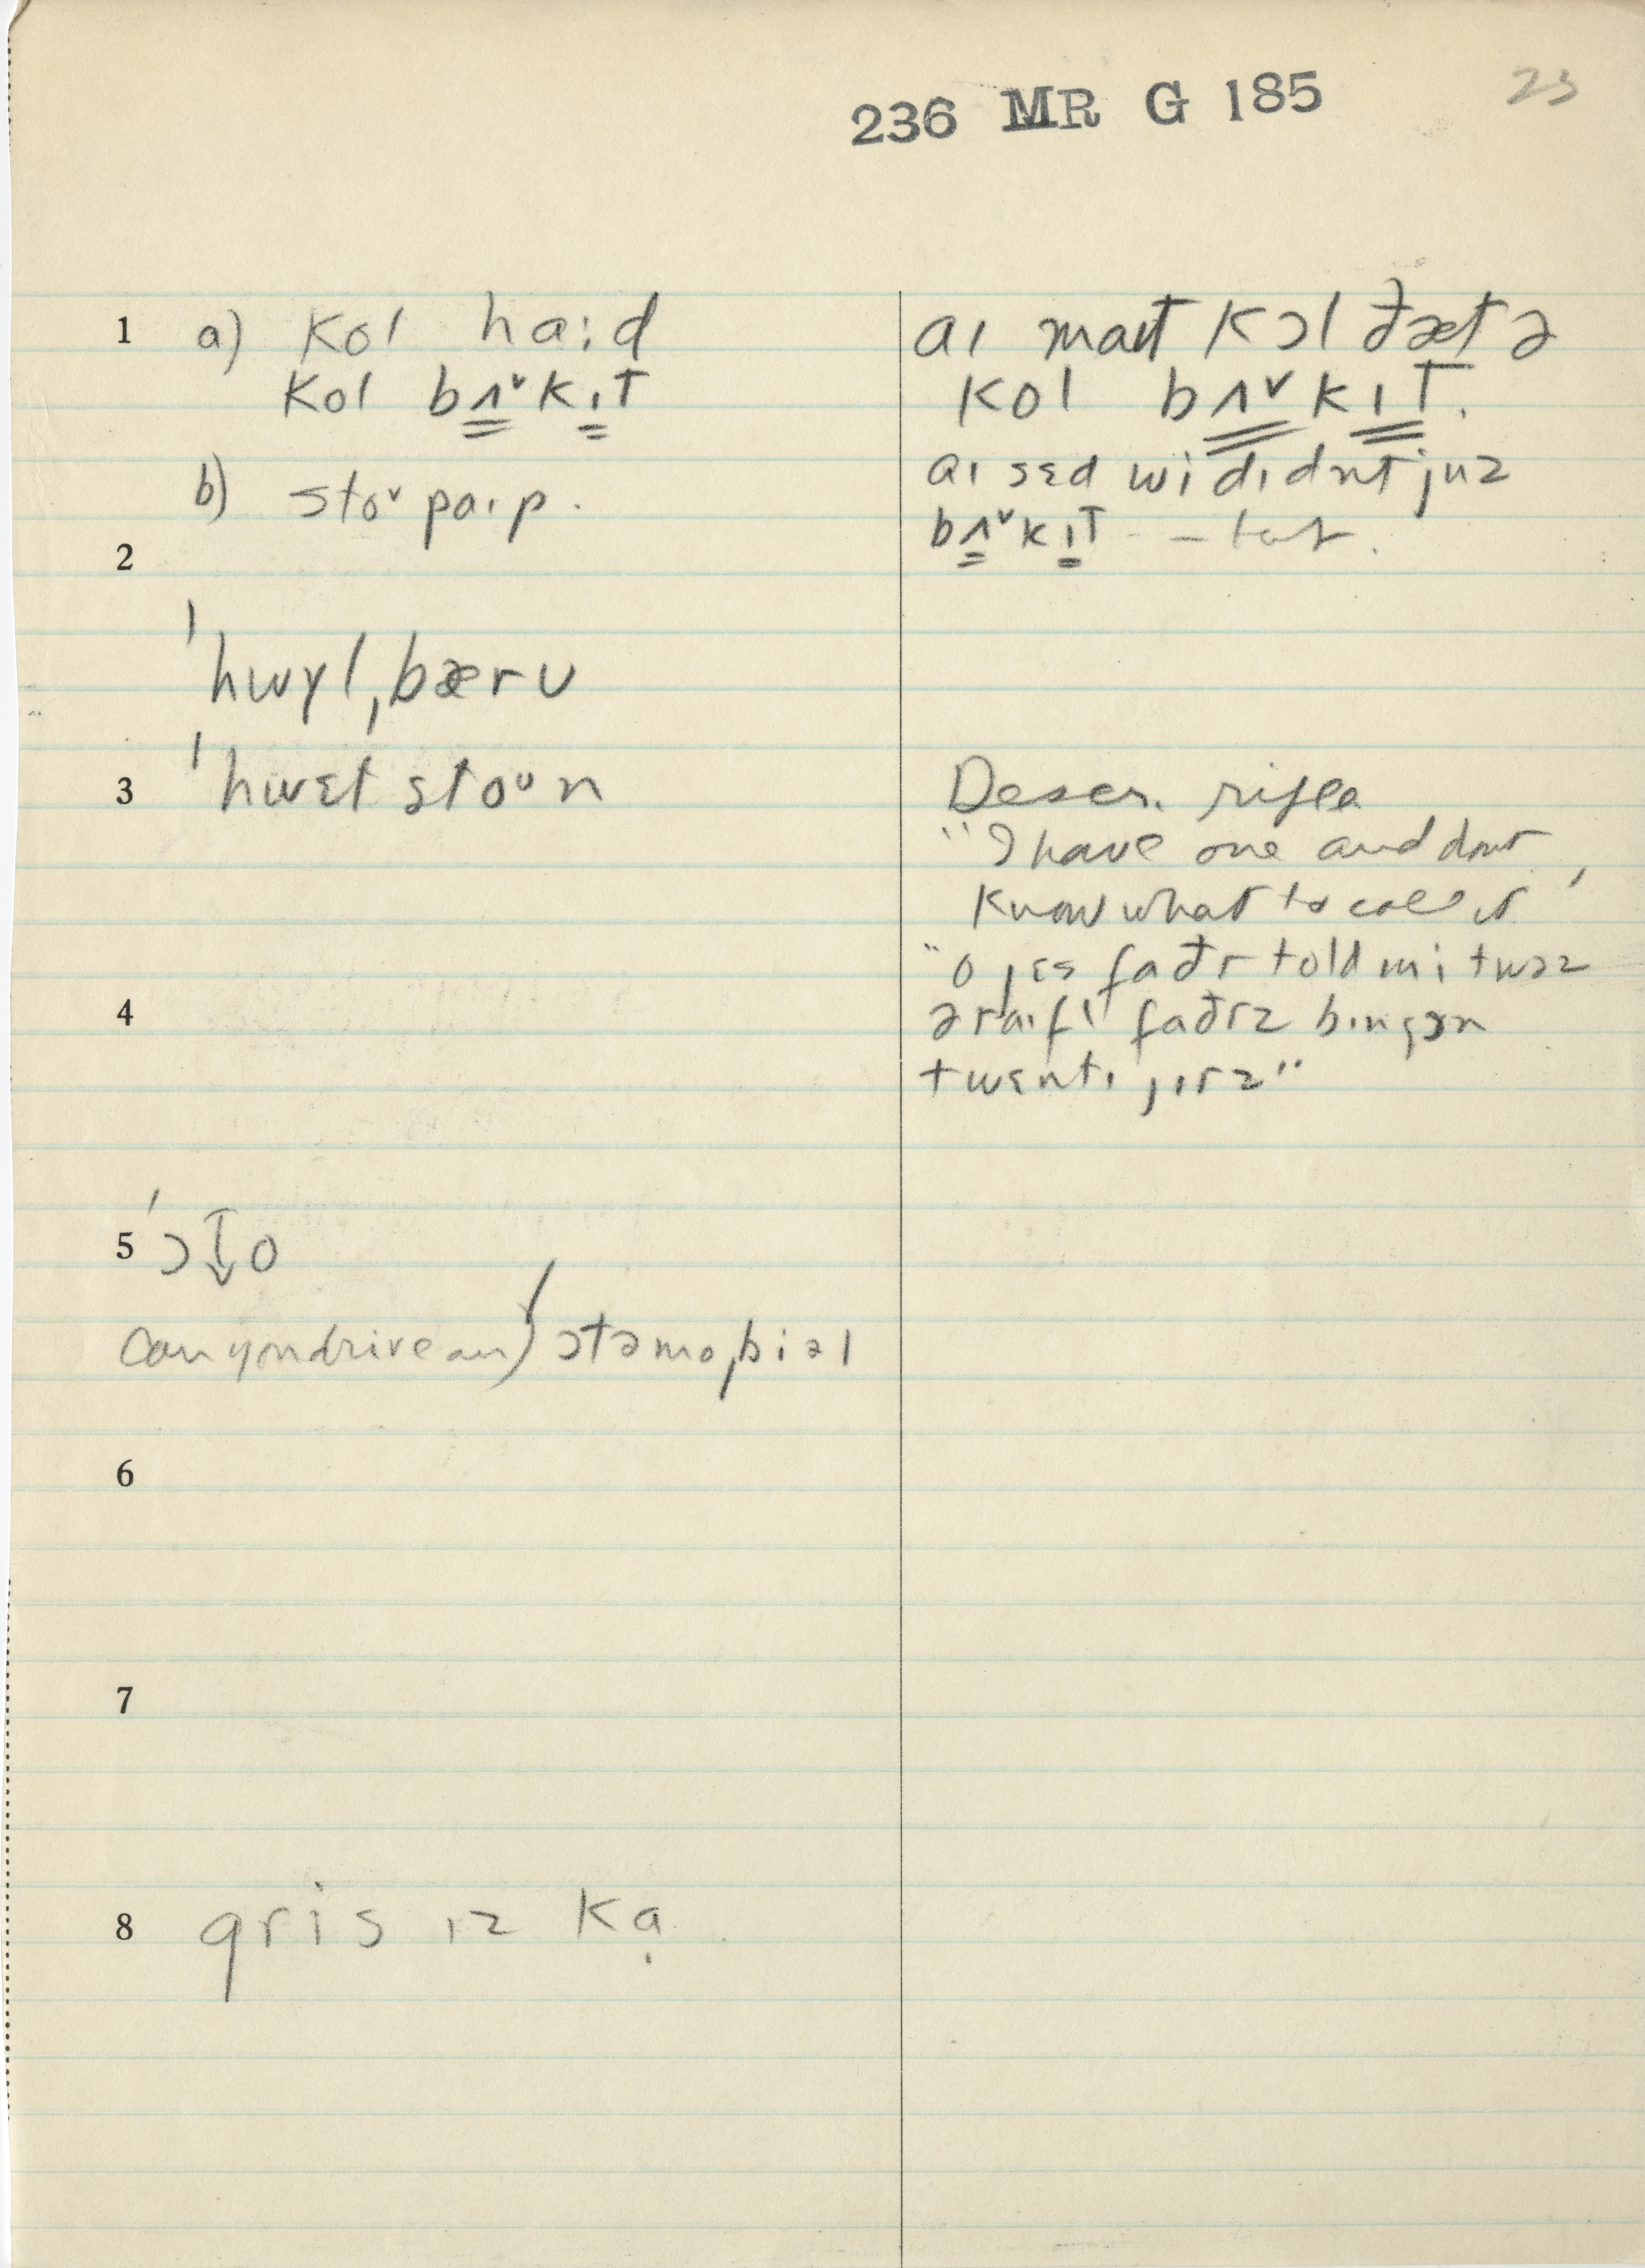 236 MR G 185
23
1 a) kol ha:d
kol bʌ̳ᵛkɪ̳t
b) stoᵛ paɪp.
2
ˈhwɣlˌbærʊ
3 ˈhwɛt stoᵘn
4
5 ˈɔ↓o
Can you drive an) ɔtəmoˌbiəl
6
7
8 gris ɪz kạ
aɪ maɪt kɔl ðæt ə
kol bʌ̳ᵛkɪ̳t.
aɪ sɛd wi dɪdnt juz
bʌ̳ᵛkɪ̳t
Descr. rifle
"I have one and dont
know what to call it"
"o jɛs faðr told mi twəz
ə raɪfl faðrz bɪn gɔn
twɛntɪ jɪrz"